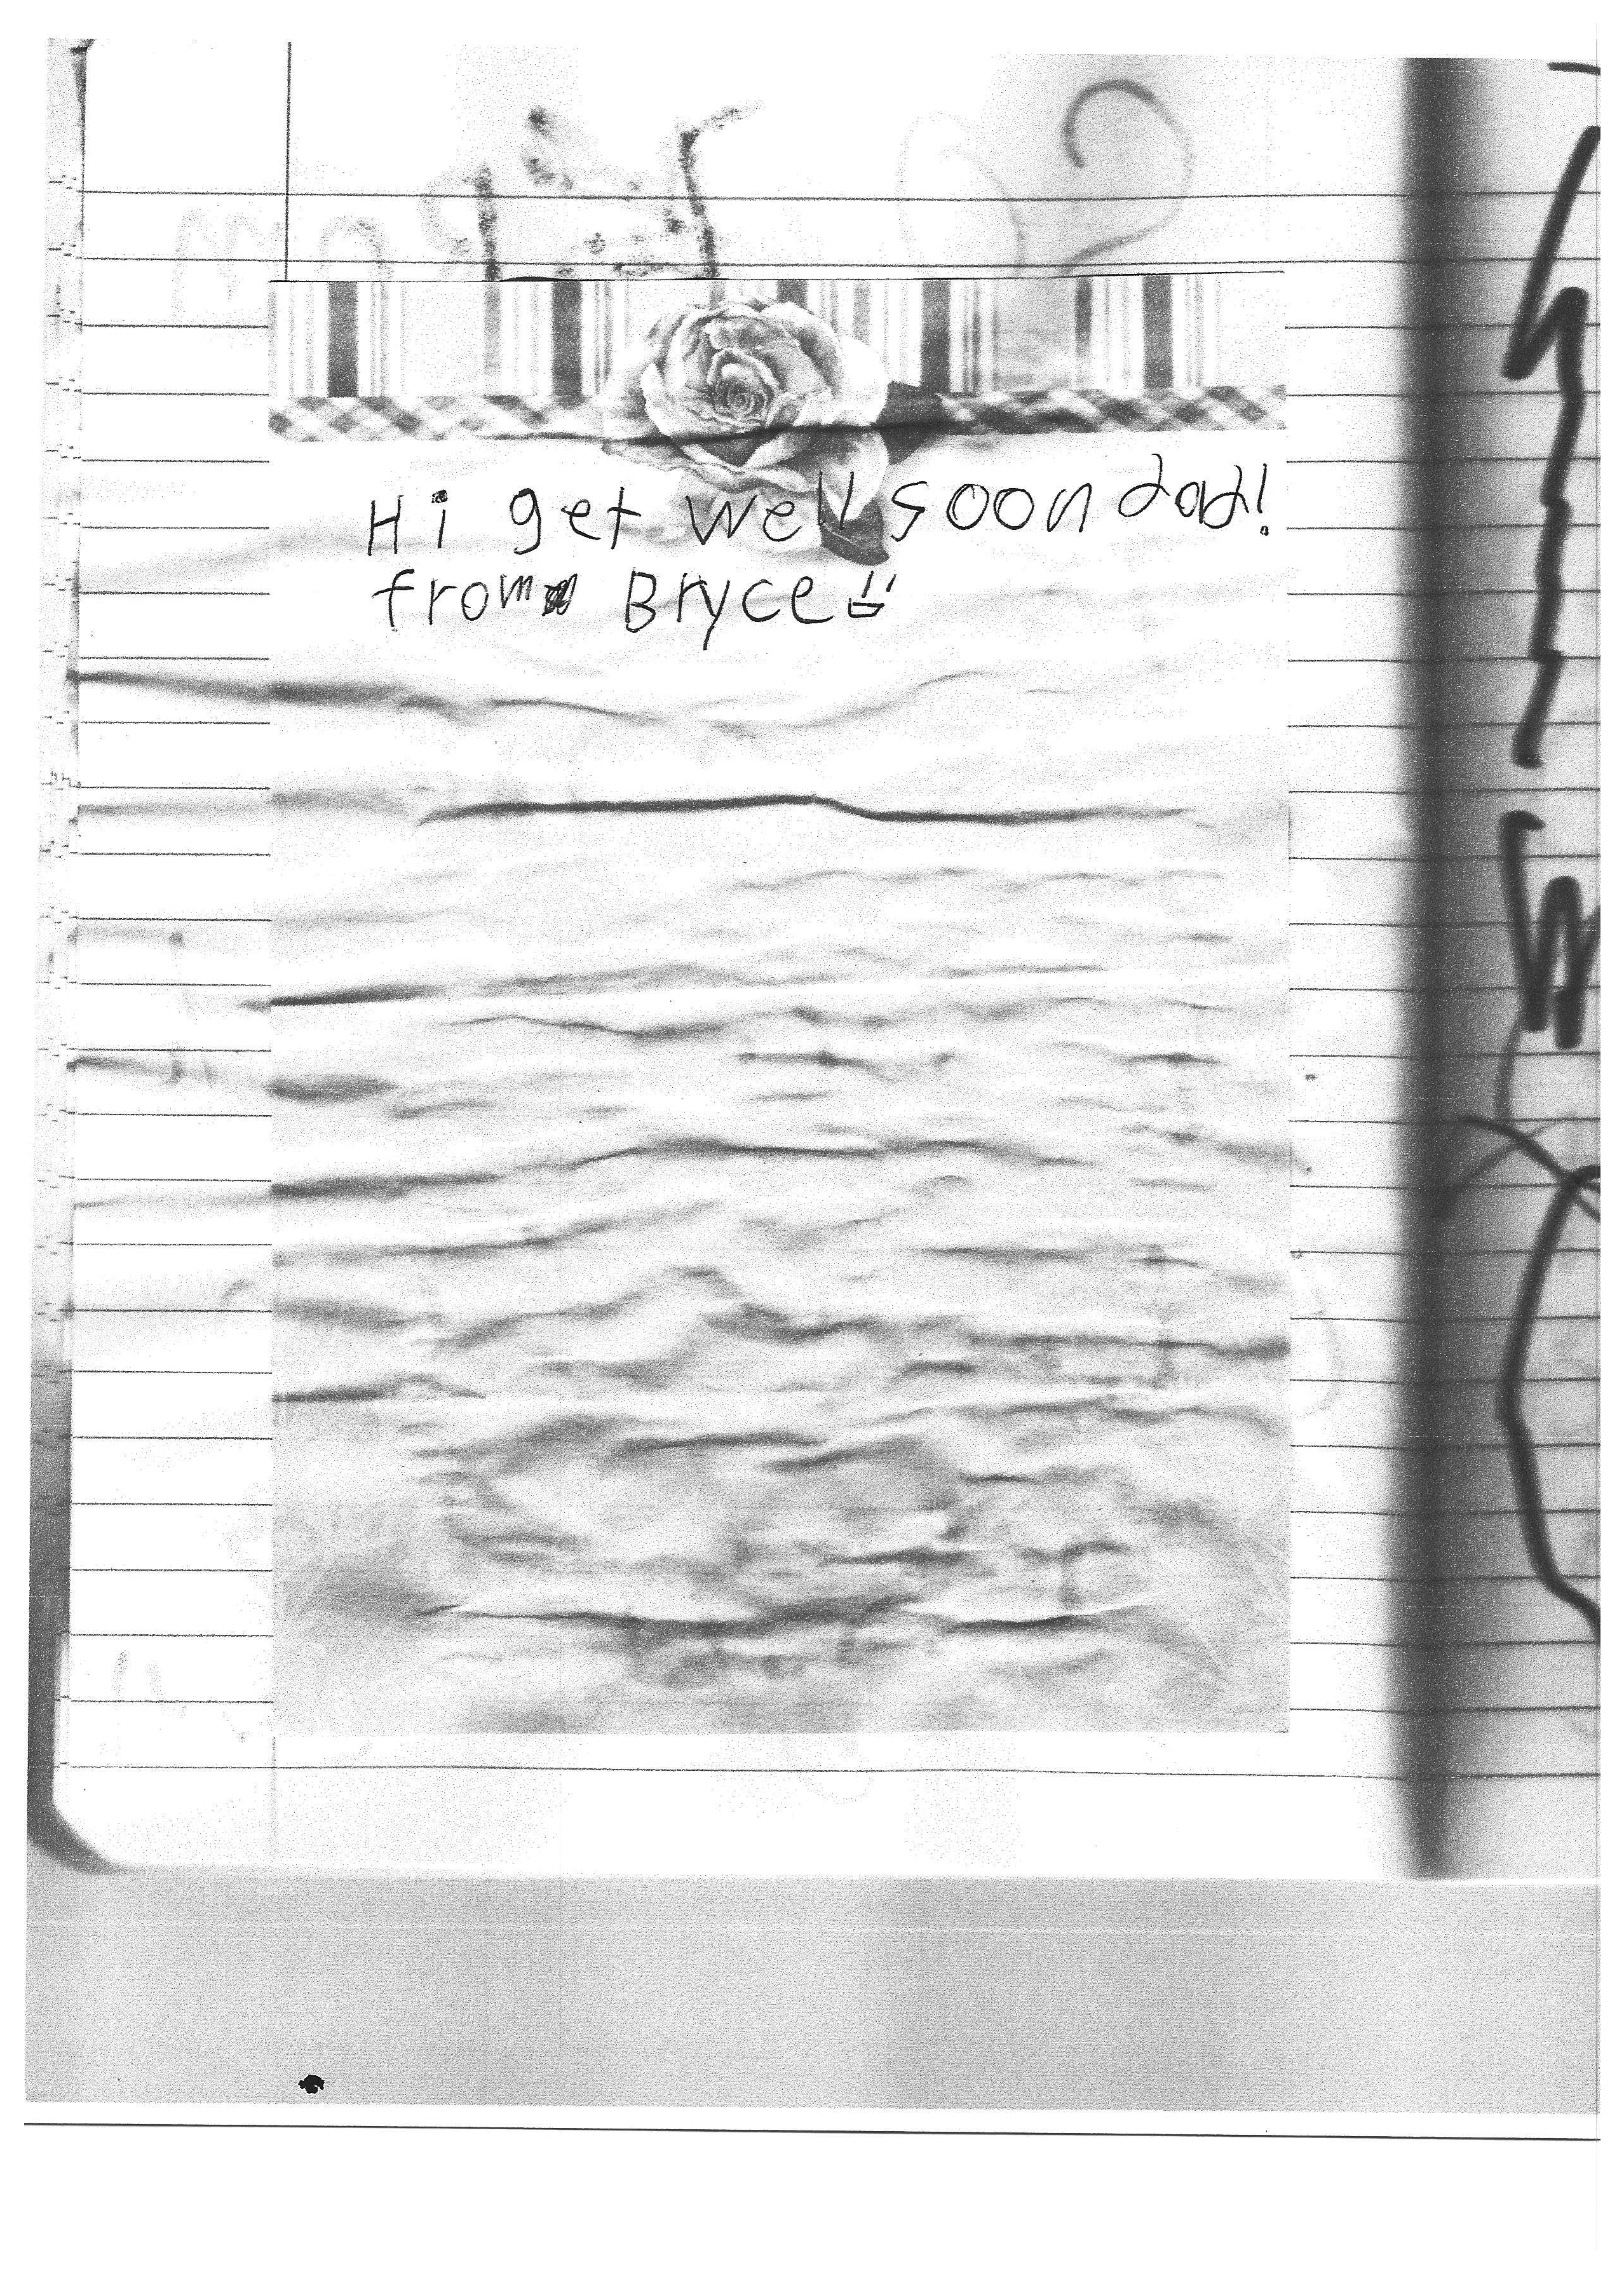 Hi get well soon dad!
from Bryce